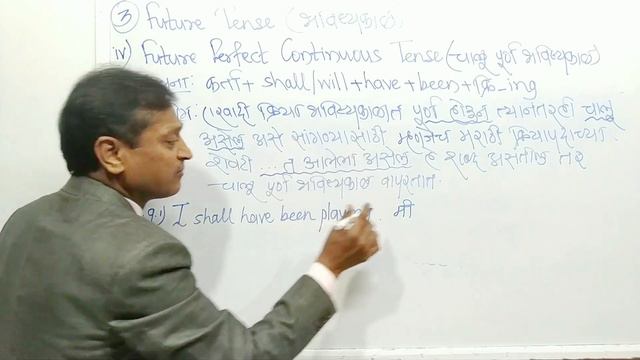 ③ Future Tense (भविष्यकाळ)
iv) Future Perfect Continuous Tense (चालू पूर्ण भविष्यकाळ)
कर्ता + shall/will + have + been + क्रि-ing
एखादी क्रिया भविष्यकाळात पूर्ण होऊन त्यानंतरही चालू
असेल असे सांगण्यासाठी म्हणजेच मराठी क्रियापदाच्या
शेवटी ...त आलेला असेल हे शब्द असतील तर
चालू पूर्ण भविष्यकाळ वापरतात.
1) I shall have been playing. मी